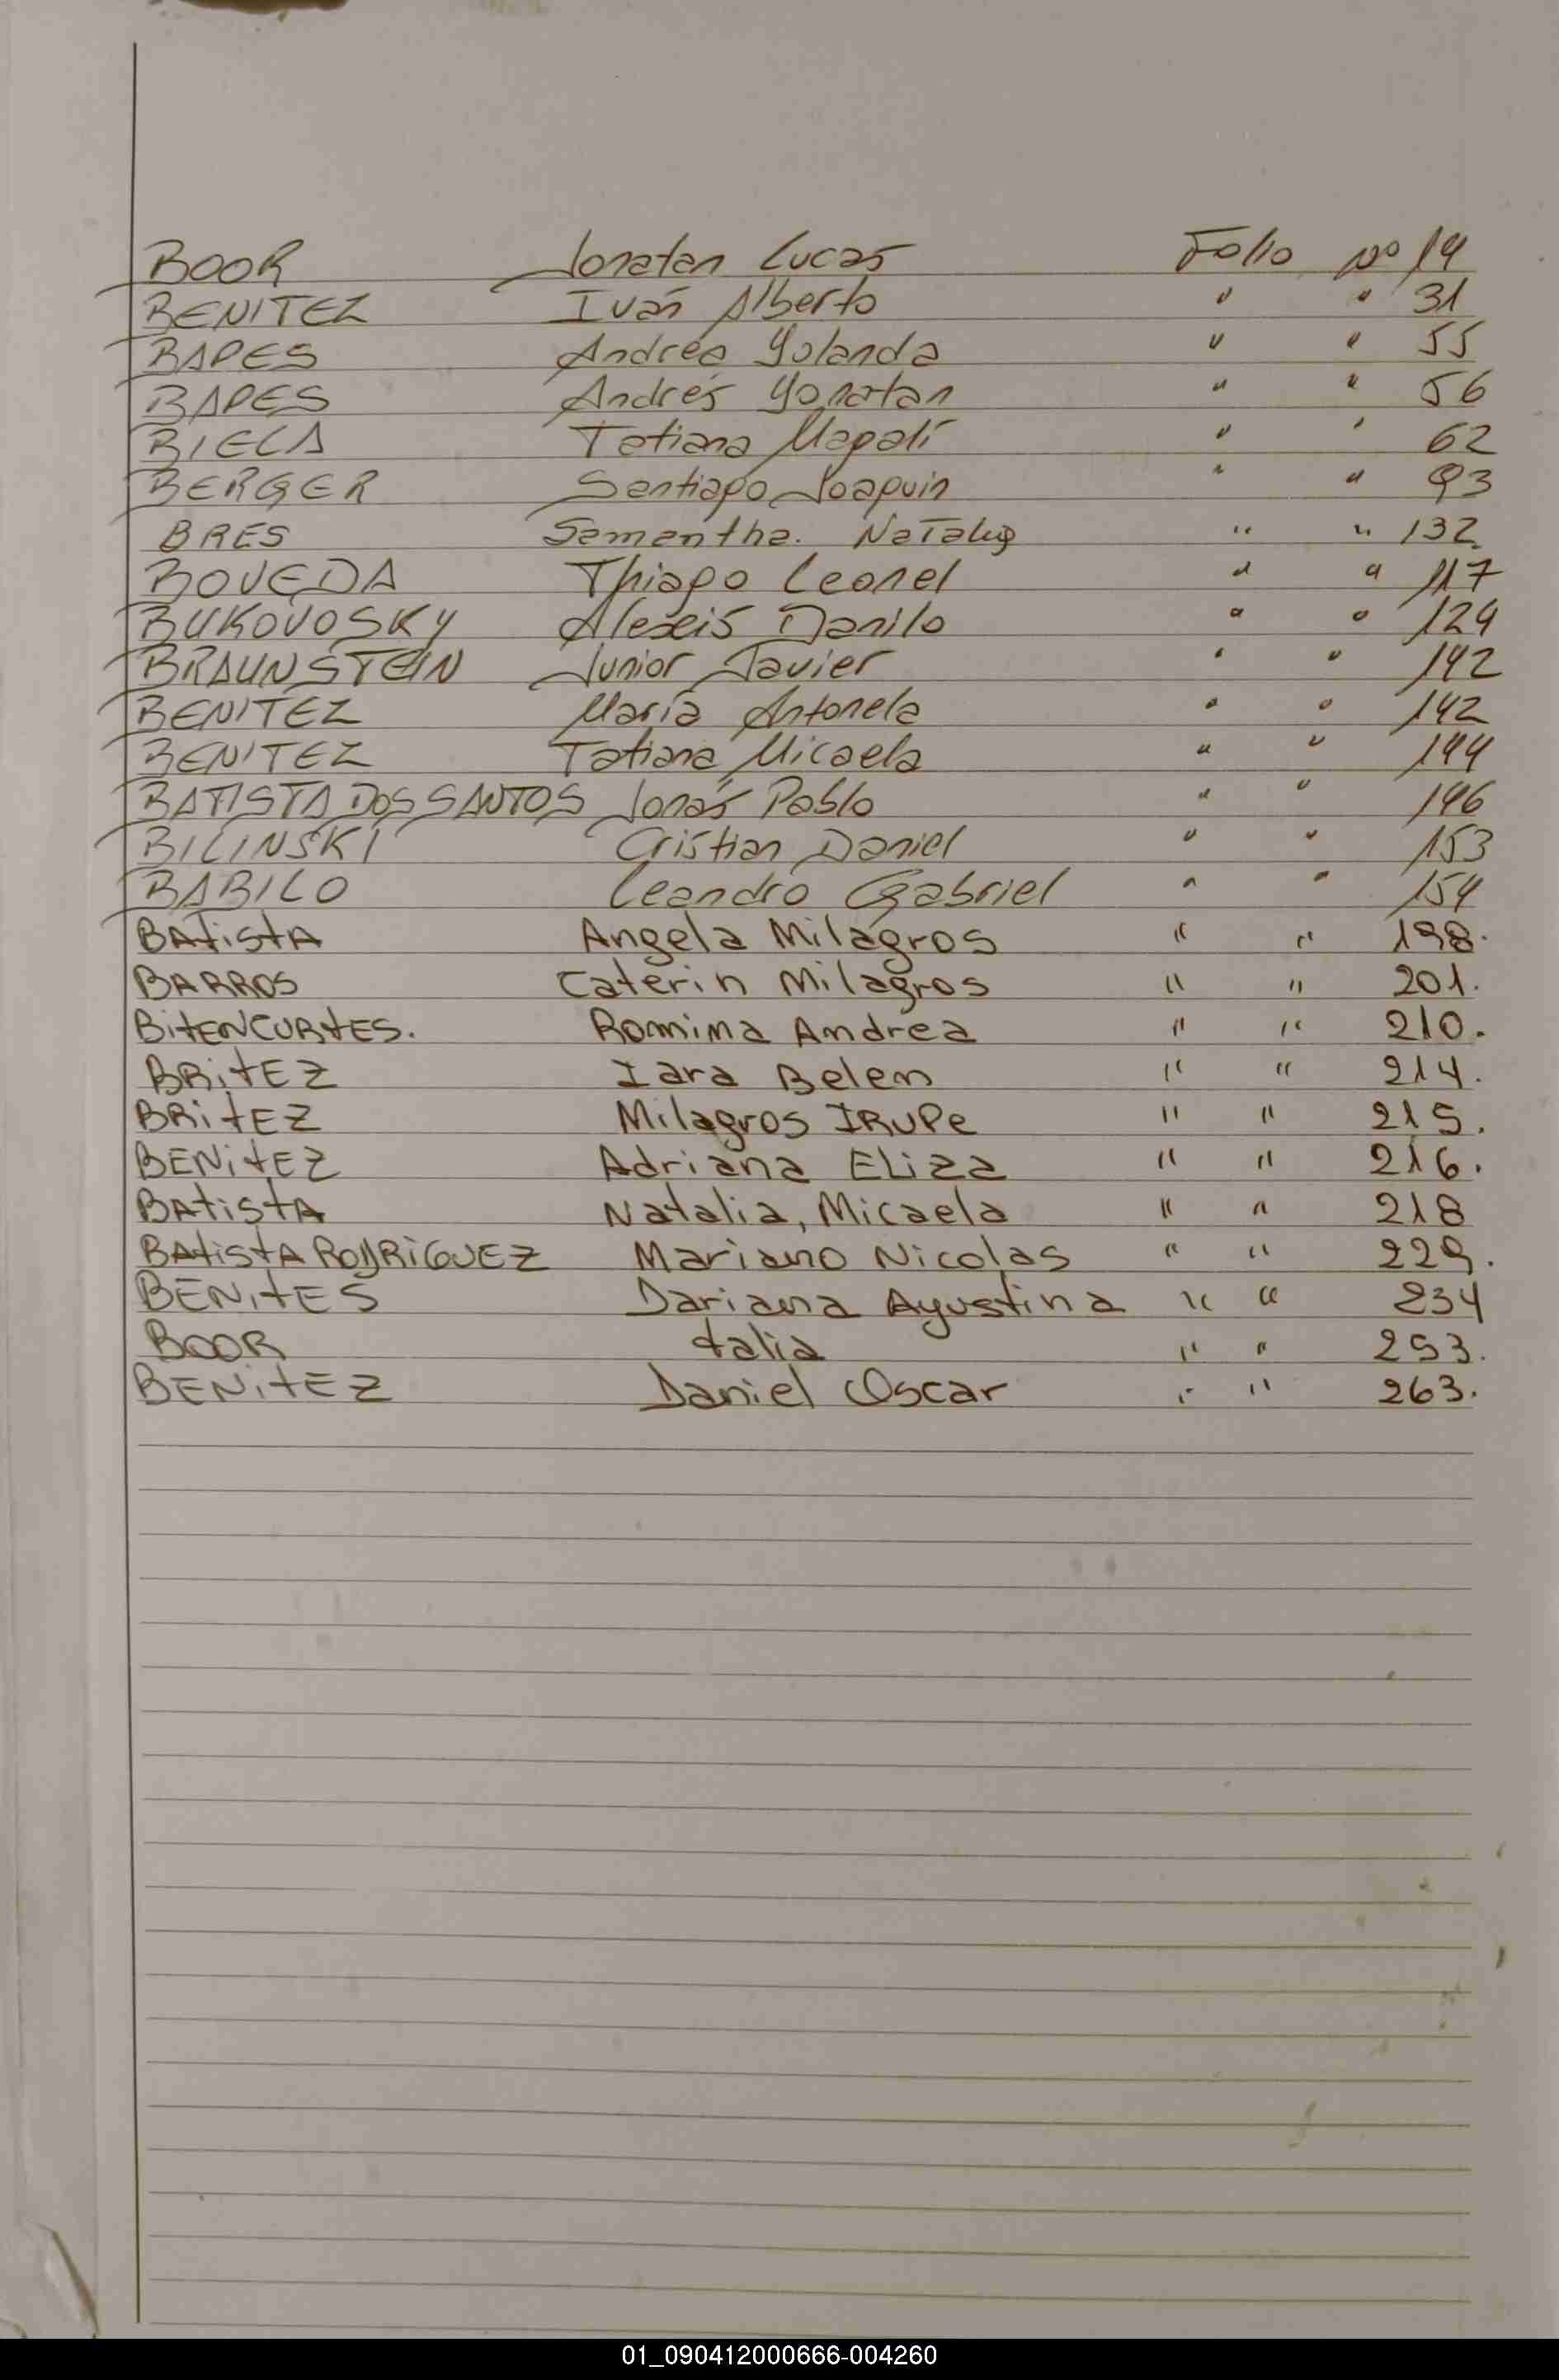 BOOR Jonatan Lucas Folio Nº 14
BENITEZ Iván Alberto " " 31
BAPES Andrea Yolanda " " 55
BAPES Andrés Yonatan " " 56
BIELA Tatiana Magalí " " 62
BERGER Santiago Joaquin " " 93
BRES Samantha. Nataly " " 132
BOVEDA Thiago Leonel " " 117
BUKOVOSKY Alexis Danilo " " 124
BRAUNSTEIN Junior Javier " " 142
BENITEZ María Antonela " " 142
BENITEZ Tatiana Micaela " " 144
BATISTA DOS SANTOS Jonás Pablo " " 146
BILINSKI Cristian Daniel " " 153
BABILO Leandro Gabriel " " 154
BAtistA Angela Milagros " " 198.
BARROS Caterin Milagros " " 201.
BitENCURtES. Romina Andrea " " 210.
BRitEZ Iara Belen " " 214.
BRitEZ Milagros IRUPe " " 215.
BENitEZ Adriana ELiza " " 216.
BAtistA Natalia, Micaela " " 218
BAtistA RODRiGUEZ Mariano Nicolas " " 229.
BENitES Dariana Agustina " " 234
BOOR talia " " 253.
BENitEZ Daniel Oscar " " 263.
01_090412000666-004260